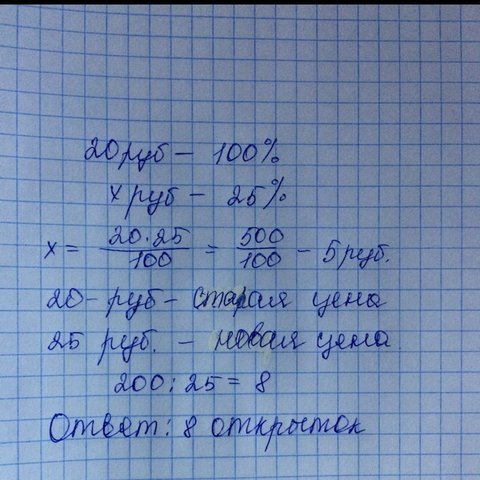 20 руб - 100%
х руб - 25%
х = 20·25/100 = 500/100 - 5 руб.
20 - руб - старая цена
25 руб. - новая цена.
200 : 25 = 8
Ответ: 8 открыток